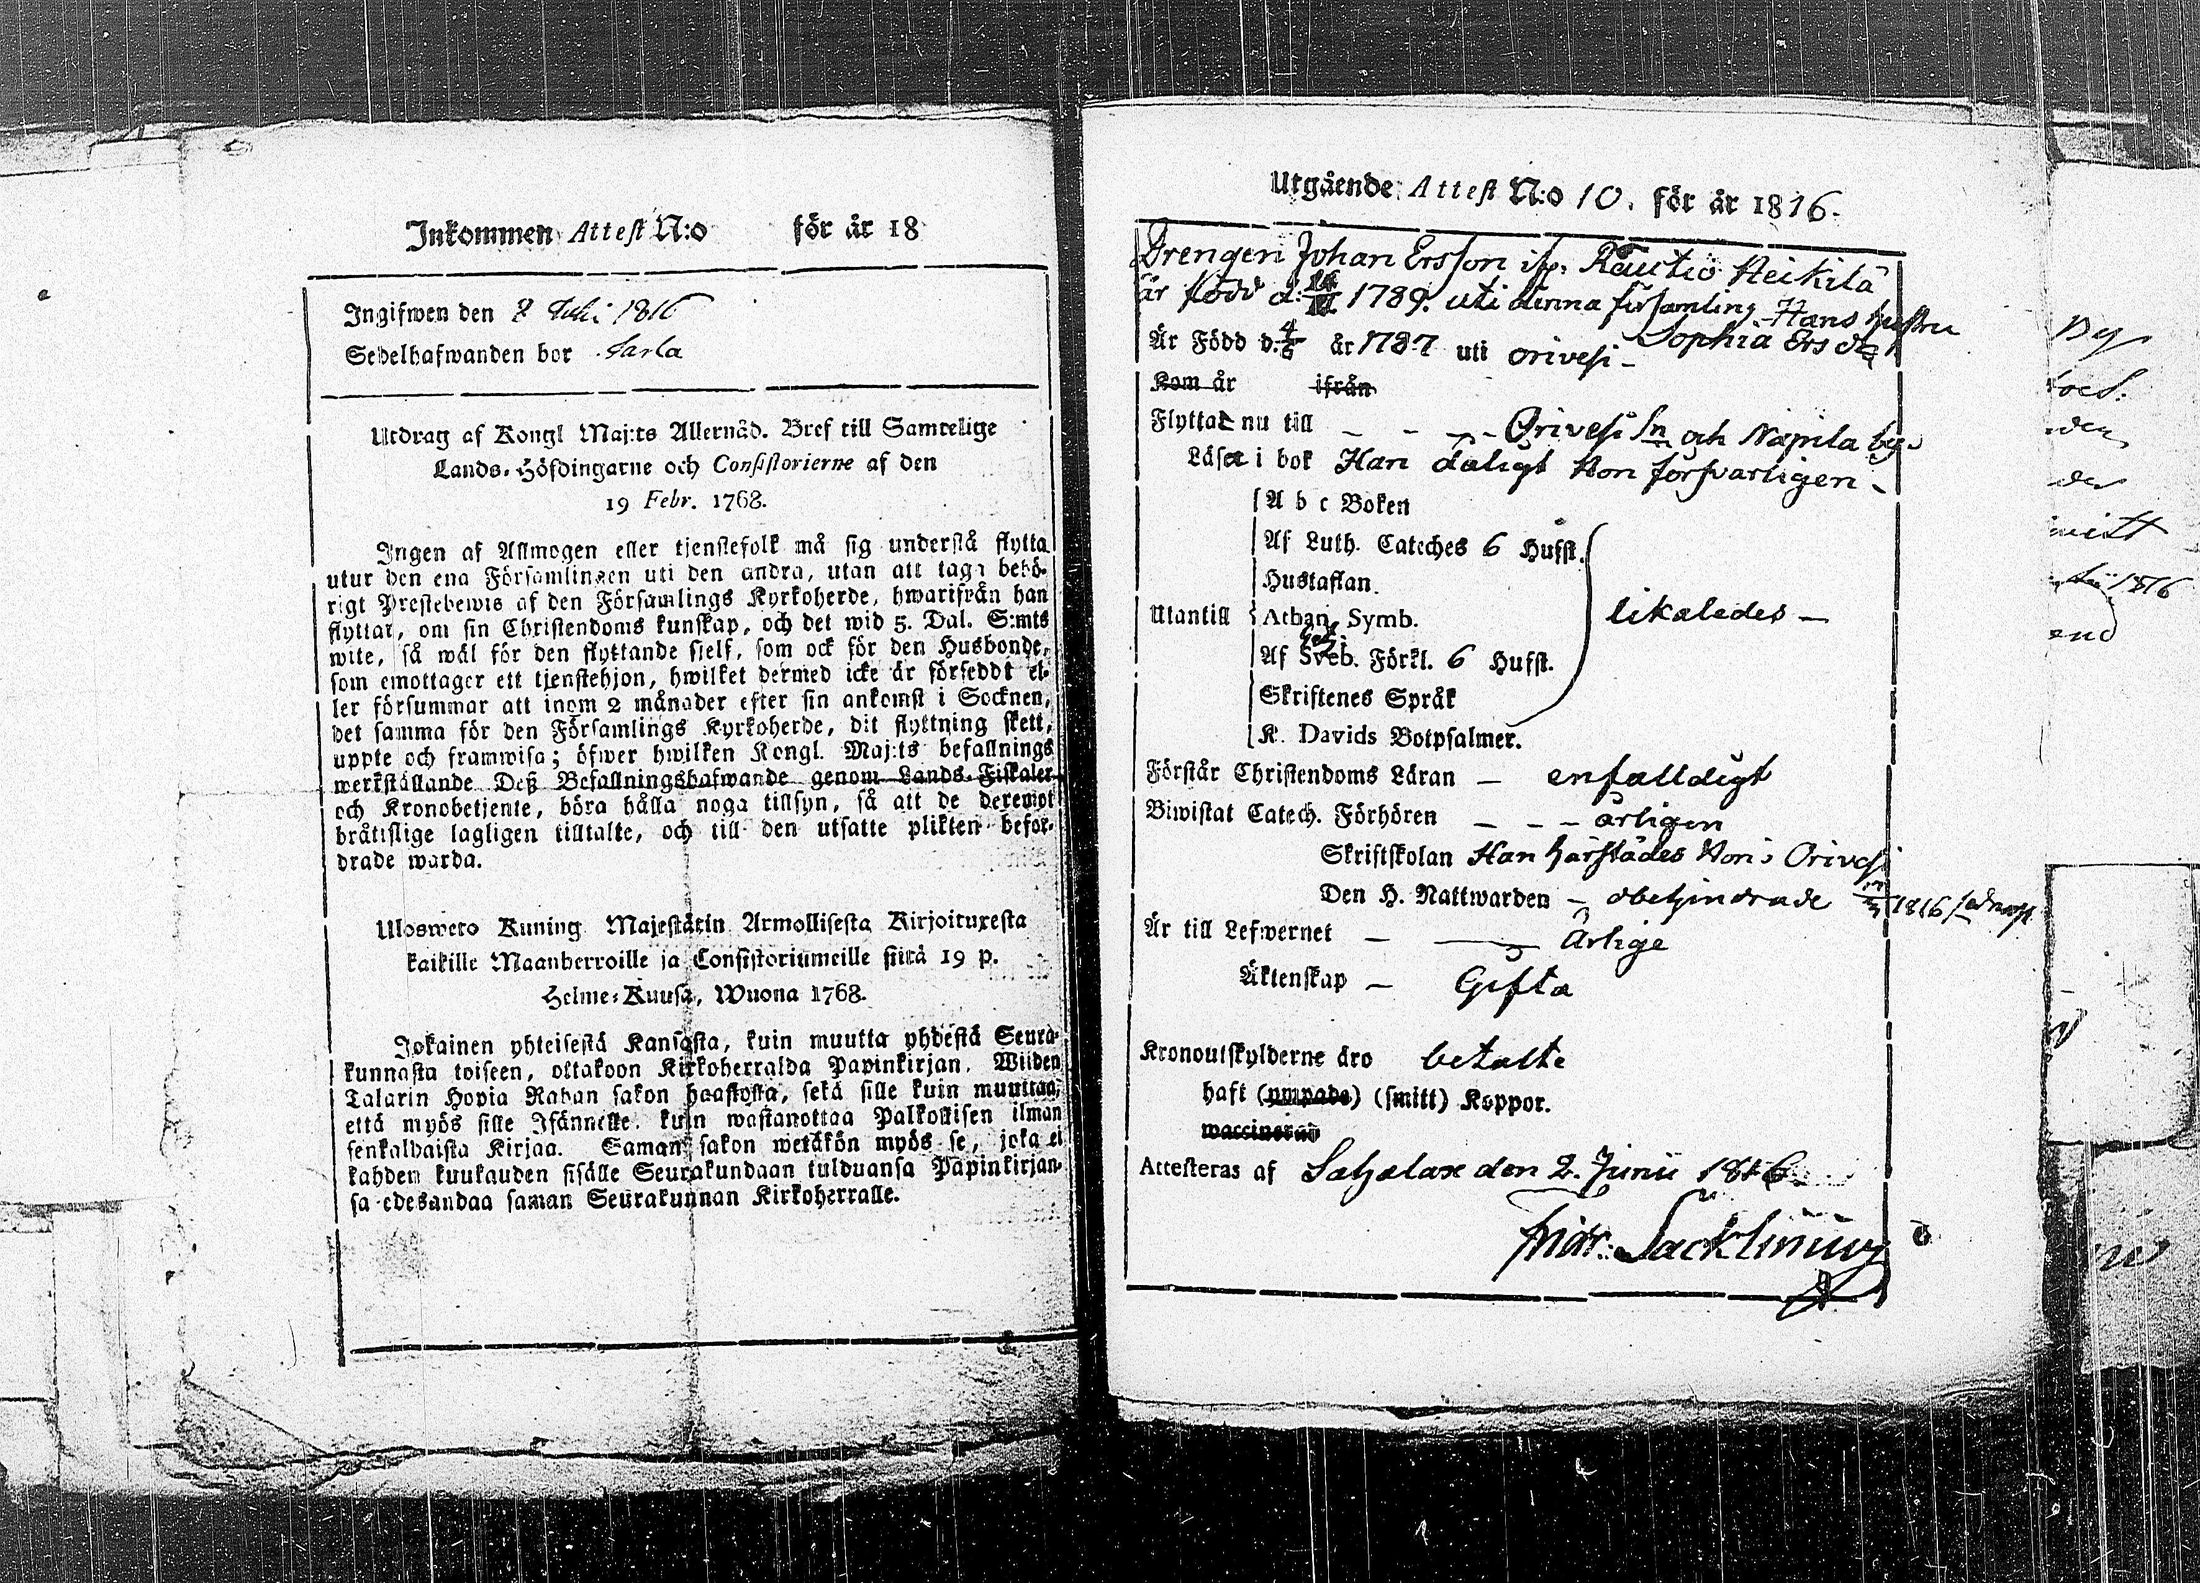 Inkommen Attest N:o för år 18
Ingifwen den 2 Juli 1816
Sedelhafwanden bor Sarla
Utdrag af Kongl Maj:ts Allernåd. Bref till Samtelige
Lands-Höfdingarne och Consistorierne af den
19 Febr. 1768.
Ingen af Allmogen eller tjenstefolk må sig understå flytta
utur den ena Församlingen uti den andra, utan att taga behö-
rigt Prestebewis af den Församlings Kyrkoherde, hwarifrån han
flyttar, om sin Christendoms kunskap, och det wid 5. Dal. S:mts
wite, så wäl för den flyttande sielf, som ock för den Husbonde,
som emottager ett tjenstehjon, hwilket dermed icke är förseddt el-
ler försummar att inom 2 månader efter sin ankomst i Socknen,
det samma för den Församlings Kyrkoherde, dit flyttning skett,
uppte och framwisa; öfwer hwilken Kongl. Maj:ts befallnings
werkställande Deß Befallningshafwande genom Lands-Fiskaler
och Kronobetjente, böra hålla noga tillsyn, så att de deremot
bråttslige lagligen tilltalte, och till den utsatte plikten befor-
drade warda.
Ulosweto Kuning Majestätin Armollisesta Kirjoituxesta
kaikille Maanherroille ja Consistoriumeille siitä 19 p.
Helme-Kuusa, Wuona 1768.
Jokainen yhteisestä Kansasta, kuin muutta yhdestä Seura-
kunnasta toiseen, ottakoon Kirkoherralda Papinkirjan. Wiiden
Talarin Hopia Rahan sakon haastosta, sekä sille kuin muuttaa,
että myös sille Isännelle, kuin wastanottaa Palkollisen ilman
senkaldaista Kirjaa. Saman sakon wetäkön myös se, joka ei
kahden kuukauden sisälle Seurakundaan tulduansa Papinkirjan-
sa edesandaa saman Seurakunnan Kirkoherralle.
Utgående Attest N:o 10. för år 1816.
Drengen Johan Ersson ifr. Rautio Heikilä
är född d. 1789. uti denna församling Hans hustru
Sophia Ersdr
Är Född d. 4/5 år 1787 uti Orivesi -
Kom år ifrån
Flyttat nu till - - - Orivesi Sn och Näpila by.
Läser i bok Han dåligt Hon försvarligen -
A b c Boken
Af Luth. Cateches 6 Hufst.
Hustaflan.
Utantill Athan. Symb. likaledes -
Af Sveb. Förkl. 6 Hufst.
Skriftenes Språk
K. Davids Botpsalmer.
Förstår Christendoms Läran - enfalldigt
Biwistat Catech. Förhören - - - årligen
Skriftskolan Han härstädes Hon i Orivesi
Den H. Nattwarden - obehindrade 1816
Är till Lefwernet - Ärlige
Äktenskap - Gifta
Kronoutskylderne äro betalte
haft (ympade) (smitt) Koppor.
waccinerad
Attesteras af Sahalax den 2. Junii 1816.
Sacklinius
By
den
1816